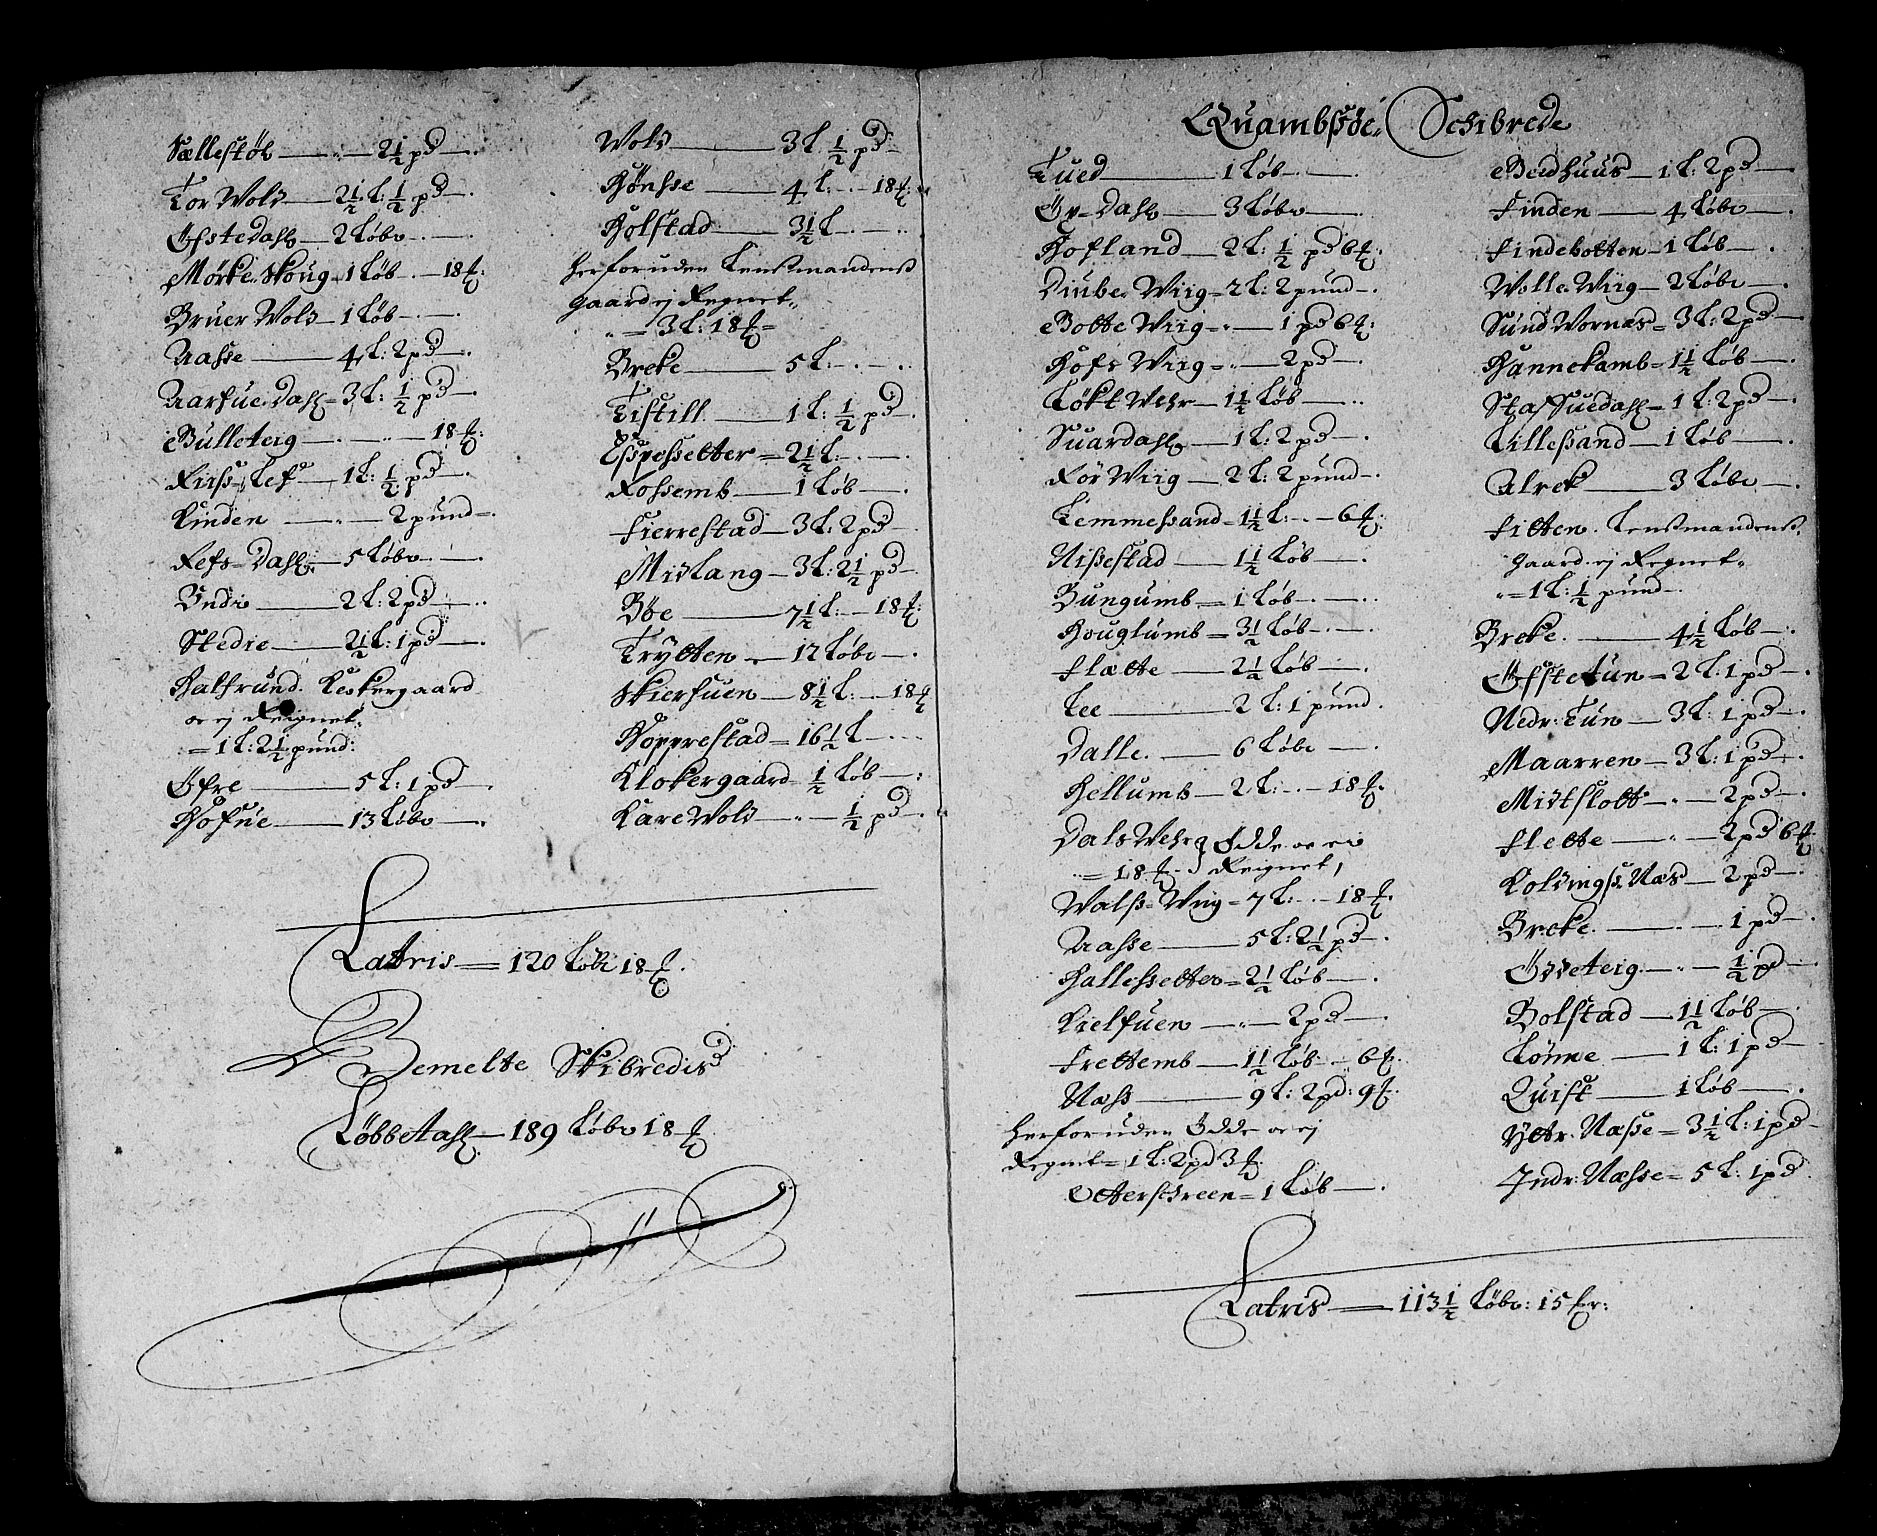 Sællestøl — 2½ pd
Tor Wold — 2½ L: ½ pd
Øfstedahl — 2 Løbe
Mørke Skoug — 1 Løb — 18 ℔:
Bruer Wold — 1 Løb
Aasse — 4 L: 2 pd
Aarfue Dahl — 3 L: ½ pd
Bulleteig — 18 ℔:
1 L: ½ pd
Kinden — 2 pund
Refs Dahl — 5 Løbe
Undi — 2 L: 2 pd
Stedie — 2½ L: 1 pd
Halfrund Klokergaard
er ej Reignet
= 1 L: 2½ pund:
Øfre — 5 L: 1 pd
Hofue — 13 Løbe
Wold — 3 L ½ pd
Hønsse — 4 L: — 18 ℔
Holstad — 3½ L
herforuden Lenssmandens
gaard ej Regnet
= 3 L: 18 ℔ =
Breke — 5 L:
Tistill — 1 L: ½ pd
Esspesetter = 2½ L:
Fossemb — 1 Løb
Fierrestad — 3 L: 2 pd
Midlang — 3 L: 2½ pd
Bøe — 7½ L: — 18 ℔:
Trytten — 12 Løbe
Skierfuen — 8½ L: — 18 ℔
Hopprestad = 16½ L
Klokergaard — ½ Løb
Kare Wold — ½ pd
Latris — 120 Løbe 18 ℔.
Bemelte Skibredis
Løbbetahl — 189 Løbe 18 ℔
Quambssøe Schibrede
Tued — 1 Løb
Øv Dahl — 3 Løbe
Hofland — 2 L: ½ pd 6 ℔:
Diube Wiig = 2 L: 2 pund
Botte Wiig — 1 pd 6 ℔:
Hofs Wiig — 2 pd
Løkt Wehr — 1½ Løb
Suardahl — 1 L: 2 pd
Før Wiig — 2 L: 2 pund
Temmessand = 1½ L: — 6 ℔:
Nissestad — 1½ Løb
Bungumb — 1 Løb
Houglumb = 3½ Løb
Flætte — 2½ Løb
Lee — 2 L: 1 pund
Dalle — 6 Løbe
Hellumb — 2 L: — 18 ℔.
Dals Wehr Ødde er ei
= 18 ℔ Reignet
Walss Wiig = 7 L: — 18 ℔.
Aasse — 5 L: 2½ pd
Hallessetter = 2½ Løb
Kielfuen — 2 pd
Frettemb — 1½ Løb — 6 ℔:
Næss — 9 L: 2 pd: 9 ℔.
herforuden Ødde er ej
Regnet = 1 L: 2 pd 3 ℔.
Otterschreen = 1 Løb
Bedhuus — 1 L: 2 pd
Finden — 4 Løbe
Findebotten = 1 Løb
Wolle Wiig — 2 Løbe
Sund Wornæs = 3 L: 2 pd
Hannekamb = 1½ Løb
Staffsuedahl = 1 L: 2 pd
Lillesand — 1 Løb
Alrek — 3 Løbe
Fitten Lenssmandens
gaard ej Regnet
= 1 L: ½ pund
Breke — 4½ Løb
Øfstetun = 2 L: 1 pd
Nedr: Tun — 3 L: 1 pd
Maarren — 3 L: 1 pd
Midtslott — 2 pd
Flette — 2 pd 6 ℔
Koldingss Næs — 2 pd
Breke — 1 pd
Øvreteig — ½ pd
Bolstad — 1½ Løb
Lønne — 1 L: 1 pd
Quist — 1 Løb
Yttr. Næsse = 3½ L: 1 pd
Indr: Næsse = 5 L: 1 pd
Latris — 113½ Løbe: 15 ℔r: